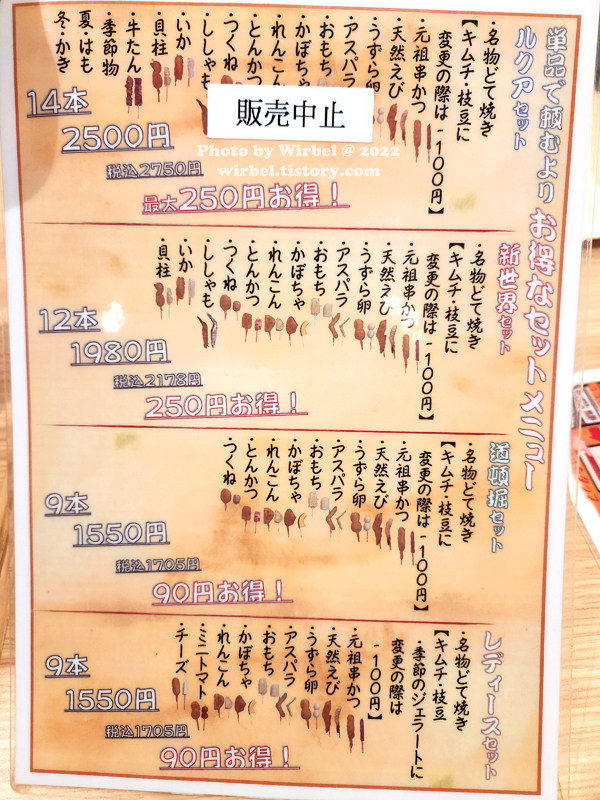 単品で頼むよりお得なセットメニュー
ルクアセット
・名物どて焼き
【キムチ・枝豆に
変更の際は-100円】
・元祖串かつ
・天然えび
・うずら卵
・アスパラ
・おもち
・かぼちゃ
・れんこん
・とんかつ
・つくね
・ししゃも
・いか
・貝柱
・牛たん
・季節物
夏・はも
冬・かき
14本
2500円
税込2750円
最大250円お得！
販売中止
Photo by Wirbel @ 2022
wirbel.tistory.com
新世界セット
・名物どて焼き
【キムチ・枝豆に
変更の際は-100円】
・元祖串かつ
・天然えび
・うずら卵
・アスパラ
・おもち
・かぼちゃ
・れんこん
・とんかつ
・つくね
・ししゃも
・いか
・貝柱
12本
1980円
税込2178円
250円お得！
道頓堀セット
・名物どて焼き
【キムチ・枝豆に
変更の際は-100円】
・元祖串かつ
・天然えび
・うずら卵
・アスパラ
・おもち
・かぼちゃ
・れんこん
・とんかつ
・つくね
9本
1550円
税込1705円
90円お得！
レディースセット
・名物どて焼き
【キムチ・枝豆
・季節のジェラートに
変更の際は
-100円】
・元祖串かつ
・天然えび
・うずら卵
・アスパラ
・おもち
・かぼちゃ
・れんこん
・ミニトマト
・チーズ
9本
1550円
税込1705円
90円お得！